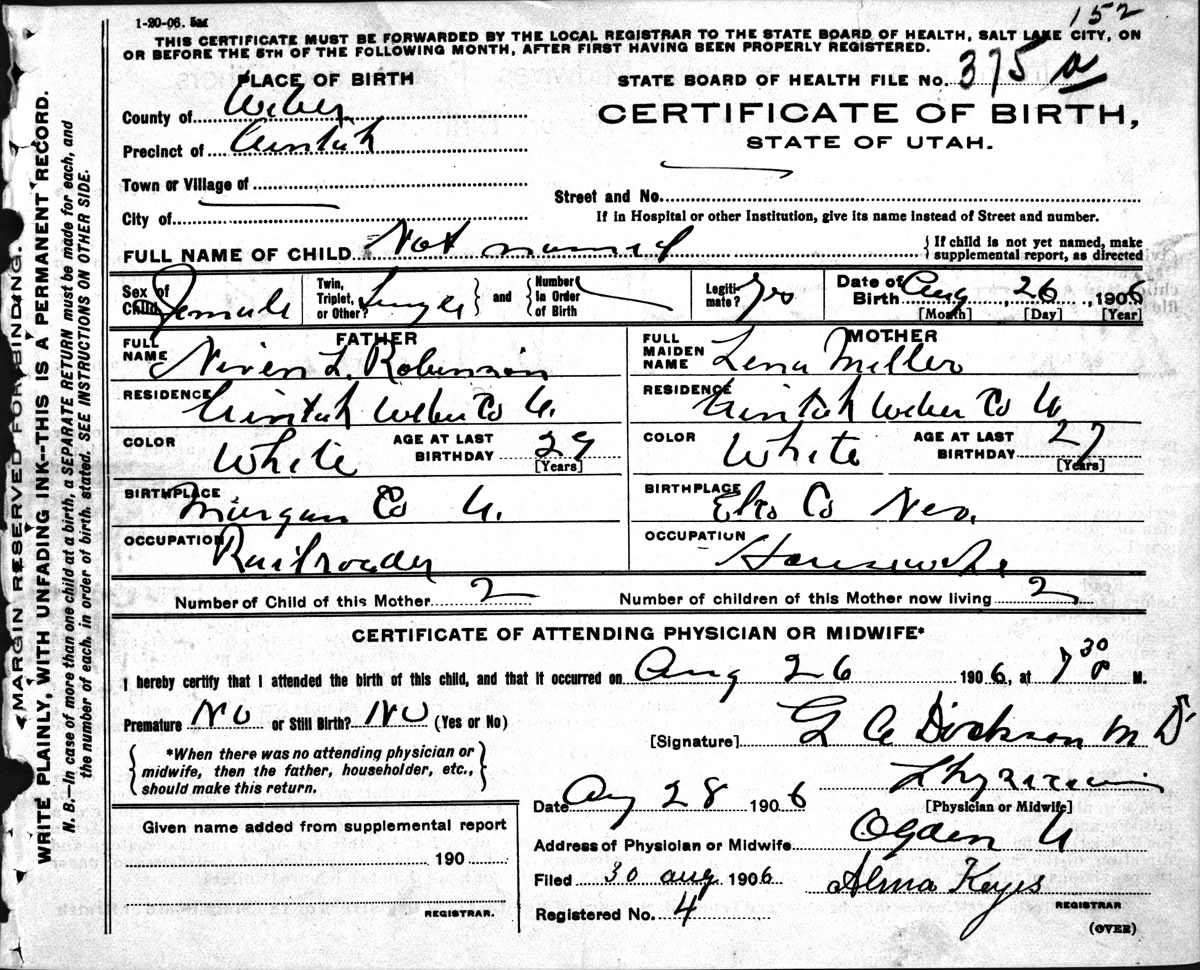 1-20-06. 5M
152
THIS CERTIFICATE MUST BE FORWARDED BY THE LOCAL REGISTRAR TO THE STATE BOARD OF HEALTH, SALT LAKE CITY, ON
OR BEFORE THE 5TH OF THE FOLLOWING MONTH, AFTER FIRST HAVING BEEN PROPERLY REGISTERED.
PLACE OF BIRTH
STATE BOARD OF HEALTH FILE No. 375 a
County of Weber
CERTIFICATE OF BIRTH,
Precinct of Uintah
STATE OF UTAH.
Town or Village of
Street and No.
City of
If in Hospital or other Institution, give its name instead of Street and number.
FULL NAME OF CHILD Not named { If child is not yet named, make supplemental report, as directed
Sex of Child Female Twin, Triplet, or Other? Single } and { Number In Order of Birth Legitimate? Yes Date of Birth Aug 26, 1906
[Month] [Day] [Year]
FATHER
FULL NAME Niven L. Robinson
RESIDENCE Uintah Weber Co U.
COLOR White AGE AT LAST BIRTHDAY 29 [Years]
BIRTHPLACE Morgan Co U.
OCCUPATION Railroader
MOTHER
FULL MAIDEN NAME Lena Miller
RESIDENCE Uintah Weber Co U
COLOR White AGE AT LAST BIRTHDAY 27 [Years]
BIRTHPLACE Elko Co Nev.
OCCUPATION Housewife
Number of Child of this Mother 2 Number of children of this Mother now living 2
CERTIFICATE OF ATTENDING PHYSICIAN OR MIDWIFE*
I hereby certify that I attended the birth of this child, and that it occurred on Aug 26 1906, at 7 30 P M.
Premature No or Still Birth? No (Yes or No)
{ *When there was no attending physician or
midwife, then the father, householder, etc.,
should make this return. }
[Signature] Dickson M D
Physician
[Physician or Midwife]
Date Aug 28 1906
Address of Physician or Midwife Ogden U
Filed 30 aug 1906 Alma Keyes
REGISTRAR
Registered No. 4
(OVER)
Given name added from supplemental report
190
REGISTRAR.
MARGIN RESERVED FOR BINDING.
WRITE PLAINLY, WITH UNFADING INK--THIS IS A PERMANENT RECORD.
N. B.—In case of more than one child at a birth, a SEPARATE RETURN must be made for each, and
the number of each, in order of birth, stated. SEE INSTRUCTIONS ON OTHER SIDE.